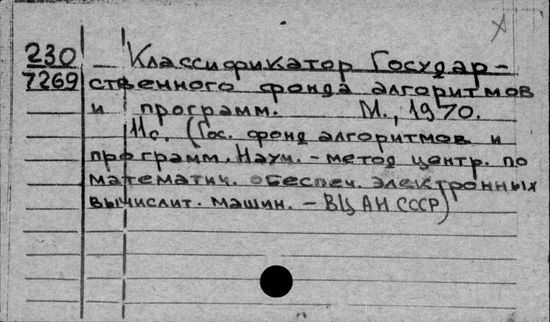 230 Классификатор Государ-
7269 ственного фонда алгоритмов
и программ. М., 1970.
11с. (Гос. фонд алгоритмов и
программ. Науч.-метод центр. по
математич. обеспеч. электронных
вычислит. машин. - ВЦ АН СССР)